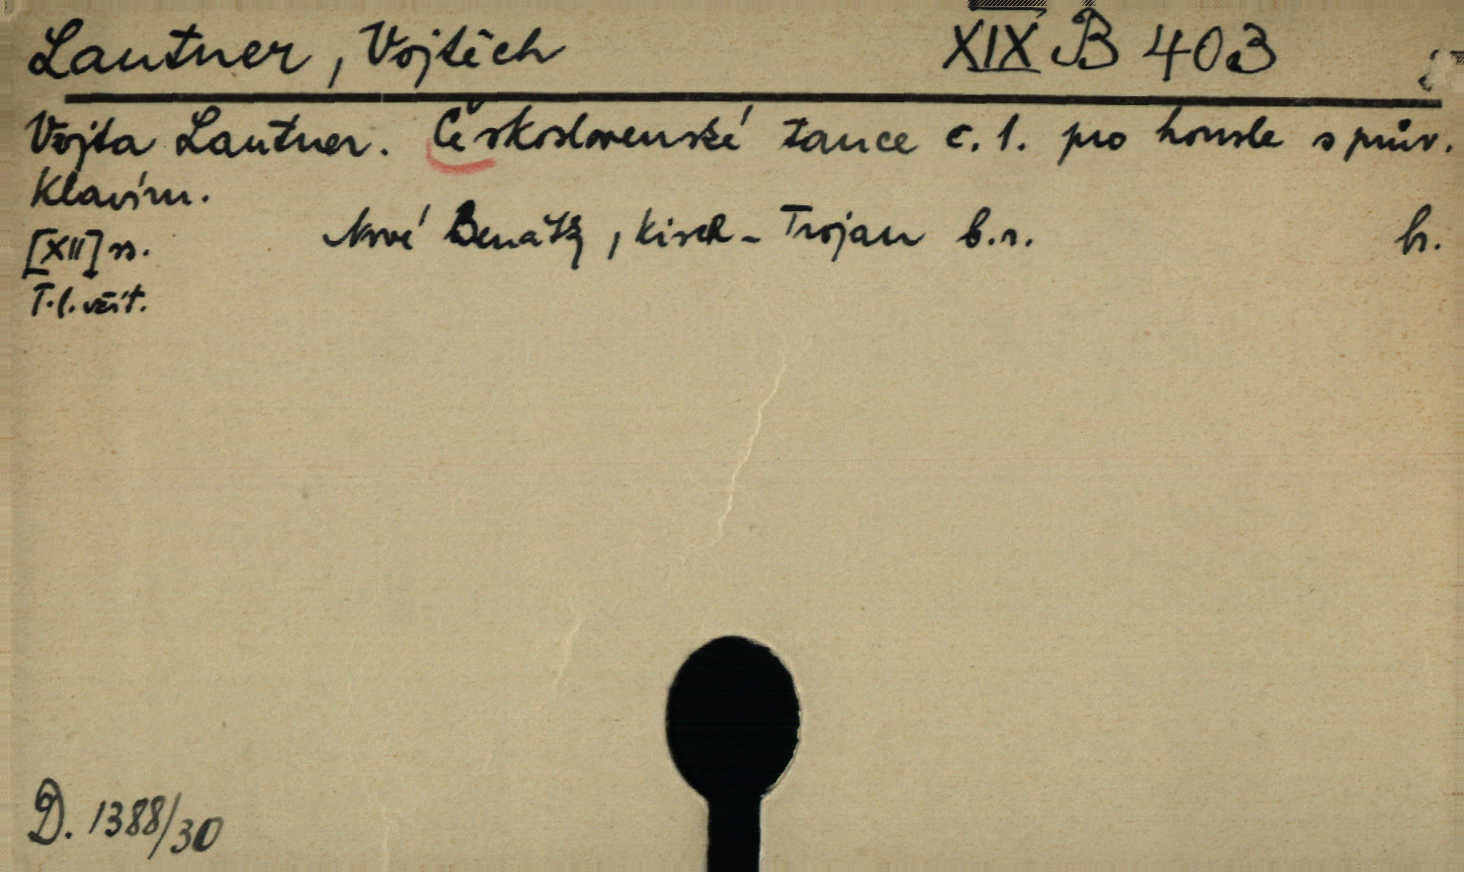 Lautner, Vojtěch XIX B 403
Vojta Lautner. Československé tance č. 1. pro housle s prův.
klavíru.
Nové Benátky, Kisch-Trojan b.r. h.
[XII] ss.
T.l. več́t.
D. 1388/30